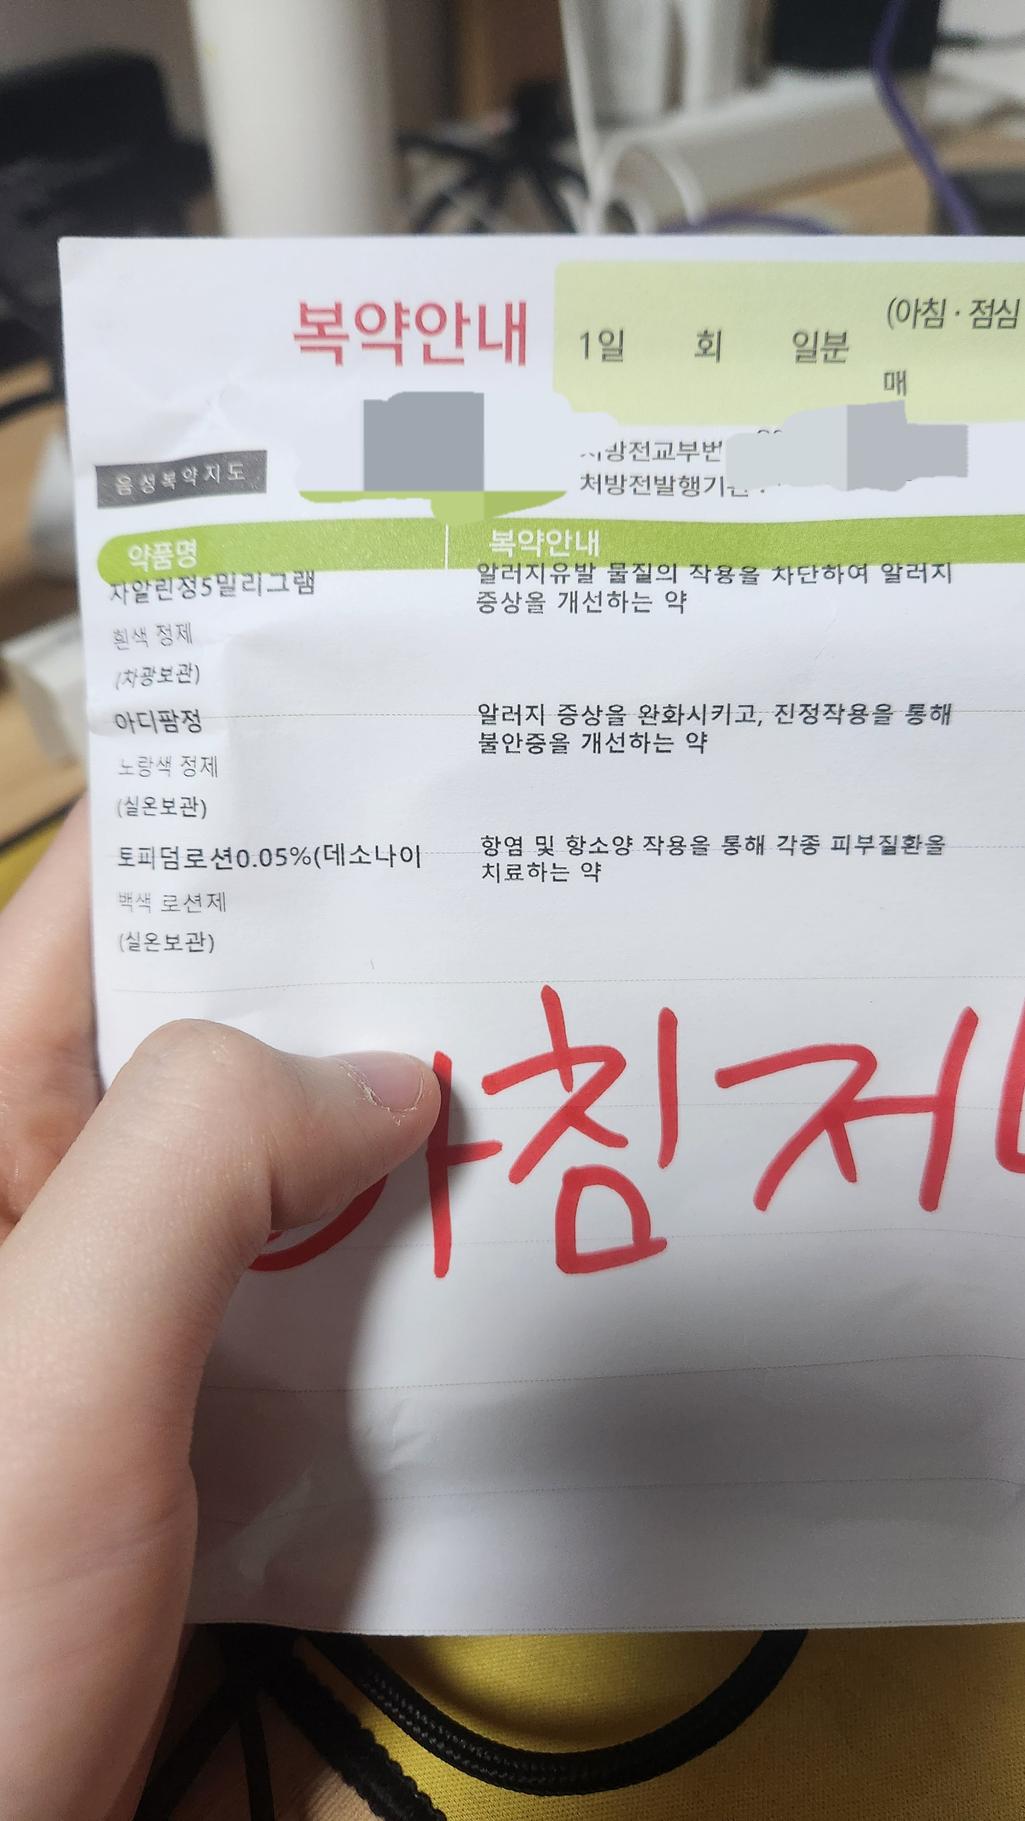 복약안내
1일 회 일분
(아침 · 점심
매
처방전교부번
처방전발행기
음성복약지도
약품명 복약안내
자알린정5밀리그램
알러지유발 물질의 작용을 차단하여 알러지
증상을 개선하는 약
흰색 정제
(차광보관)
아디팜정
알러지 증상을 완화시키고, 진정작용을 통해
불안증을 개선하는 약
노랑색 정제
(실온보관)
토피덤로션0.05%(데소나이
항염 및 항소양 작용을 통해 각종 피부질환을
치료하는 약
백색 로션제
(실온보관)
아침 저